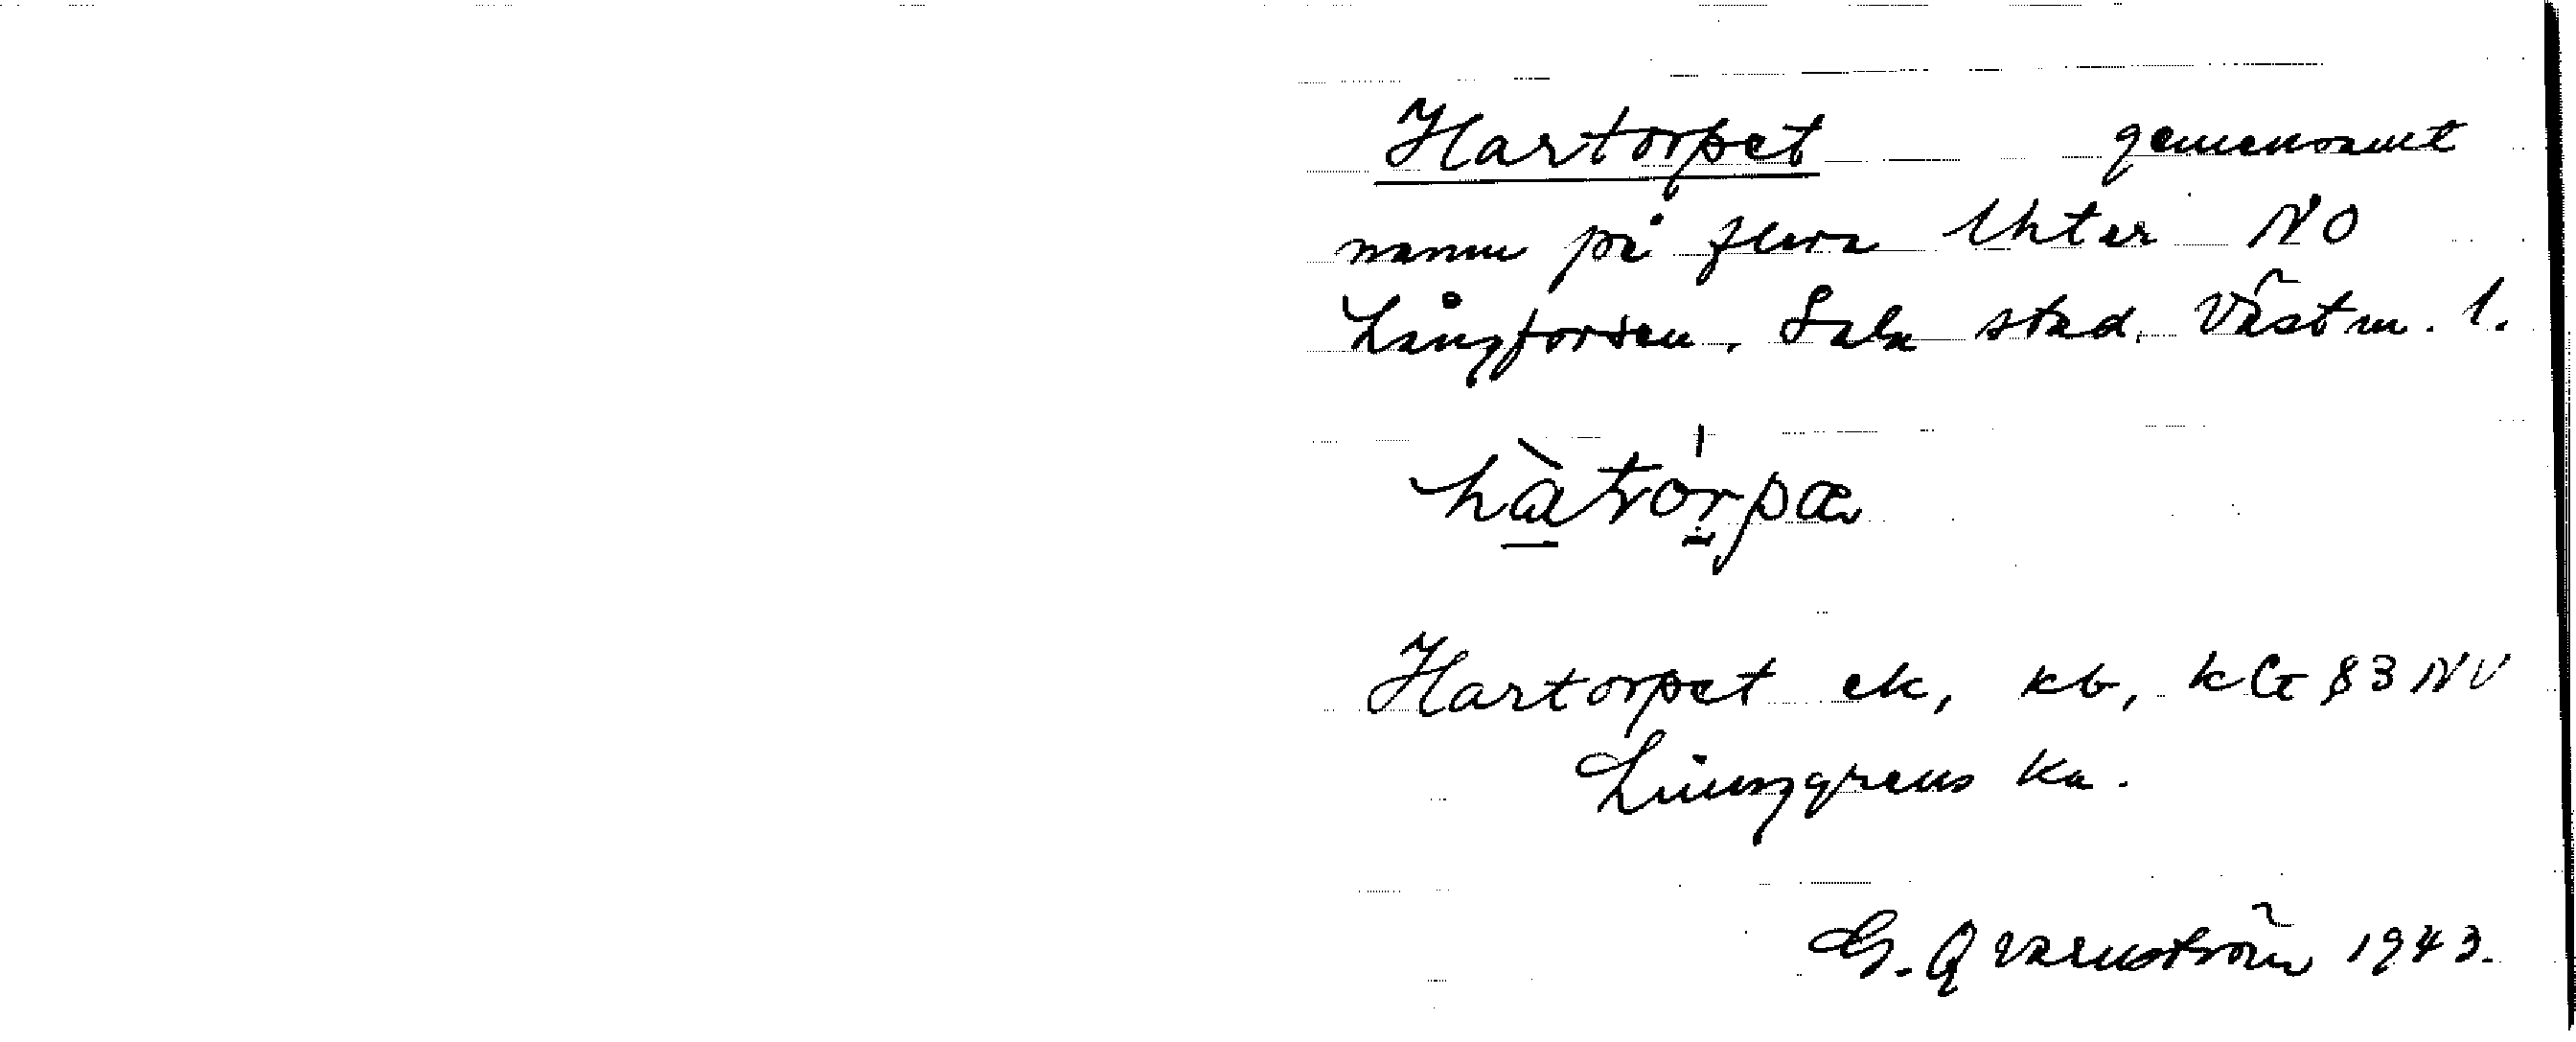 Hartorpet gemensamt
namn på flera lhter NO
Långforsen. Sala stad, Västm. l.
hàtórpæ
Hartorpet ek, kb, kG §3 NV
Ljunggrens ka.
G. Qvarnström 1943.